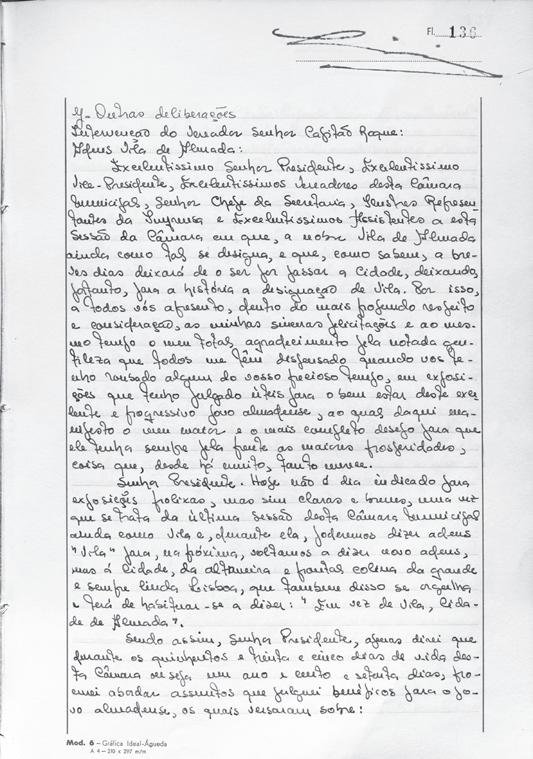 Fl. 136
Y- Outras deliberações
Intervenção do Vereador Senhor Capitão Roque:
Adeus Vila de Almada:
Excelentíssimo Senhor Presidente, Excelentíssimo
Vice-Presidente, Excelentíssimos Vereadores desta Câmara
Municipal, Senhor Chefe da Secretaria, Ilustres Represen
tantes da Imprensa e Excelentíssimos Assistentes a esta
Sessão da Câmara em que, a nobre Vila de Almada
ainda como tal se designa, e que, como sabem, a bre-
ves dias deixará de o ser por passar a Cidade, deixando,
portanto, para a história a designação de Vila. Por isso,
a todos vós apresento, dentro do mais profundo respeito
e consideração, as minhas sinceras felicitações e ao mes-
mo tempo o meu total agradecimento pela notada gen-
tileza que todos me têm dispensado quando vos te-
nho roubado algum do vosso precioso tempo, em exposi-
ções que tenho julgado úteis para o bem estar deste exce
lente e progressivo povo almadense, ao qual daqui ma-
nifesto o meu maior e o mais completo desejo para que
ele tenha sempre pela frente as maiores prosperidades,
coisa que, desde há muito, tanto merece.
Senhor Presidente. Hoje não é dia indicado para
exposições prolixas, mas sim claras e breves, uma vez
que se trata da última sessão desta Câmara Municipal
ainda como Vila e, durante ela, poderemos dizer adeus
"Vila" para, na próxima, voltarmos a dizer novo adeus,
mas á Cidade, da altaneira e frontal colina da grande
e sempre linda Lisboa, que também disso se orgulha
e terá de habituar-se a dizer: "Em vez de Vila, Cida-
de de Almada".
Sendo assim, Senhor Presidente, apenas direi que
durante os quinhentos e trinta e cinco dias de vida des-
ta Câmara ou seja um ano e cento e setenta dias, pro-
curei abordar assuntos que julguei benéficos para o po-
vo almadense, os quais versaram sobre:
Mod. 6 – Gráfica Ideal-Águeda
A 4 – 210 x 297 m/m